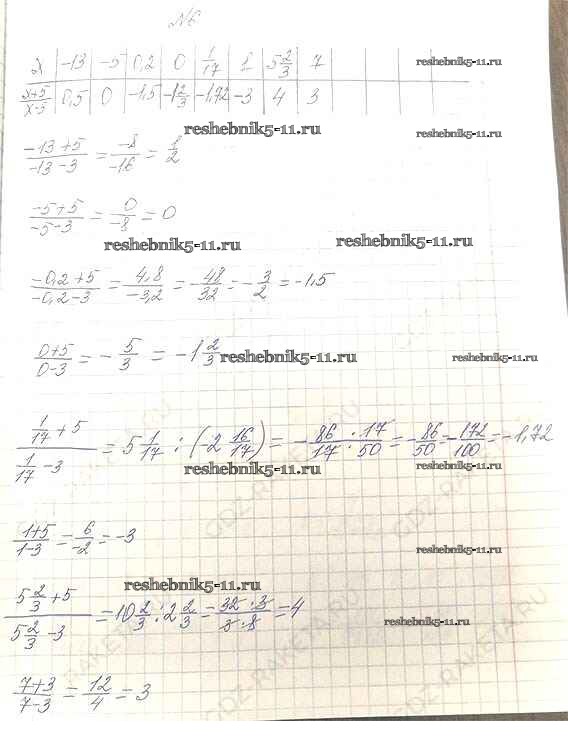 №6
x | -13 | -5 | 0,2 | 0 | 1/17 | 1 | 5 2/3 | 7
reshebnik5-11.ru
(x+5)/(x-3) | 0,5 | 0 | -1,5 | -1 2/3 | -1,72 | -3 | 4 | 3
reshebnik5-11.ru reshebnik5-11.ru
(-13+5)/(-13-3) = (-8)/(-16) = 1/2
(-5+5)/(-5-3) = 0/(-8) = 0
reshebnik5-11.ru reshebnik5-11.ru
(-0,2+5)/(-0,2-3) = 4,8/(-3,2) = -48/32 = -3/2 = -1,5
(0+5)/(0-3) = -5/3 = -1 2/3
reshebnik5-11.ru reshebnik5-11.ru
(1/17+5)/(1/17-3) = 5 1/17 : (-2 16/17) = -(86·17)/(17·50) = -86/50 = -172/100 = -1,72
reshebnik5-11.ru reshebnik5-11.ru
(1+5)/(1-3) = 6/(-2) = -3
reshebnik5-11.ru
reshebnik5-11.ru
(5 2/3+5)/(5 2/3-3) = 10 2/3 : 2 2/3 = (32·3)/(3·8) = 4
reshebnik5-11.ru
(7+3)/(7-3) = 12/4 = 3
GDZ-RAKETA.RU